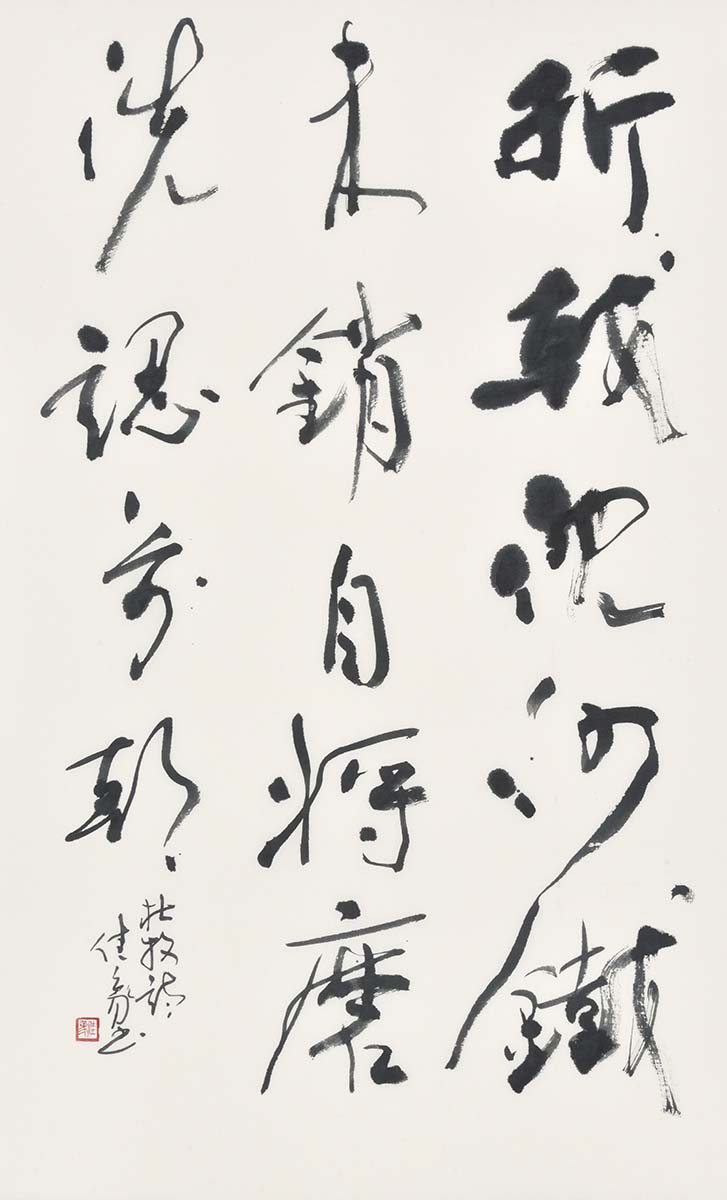 折戟沈沙鐵
未銷自將磨
洗認前朝
杜牧詩
佳彖书